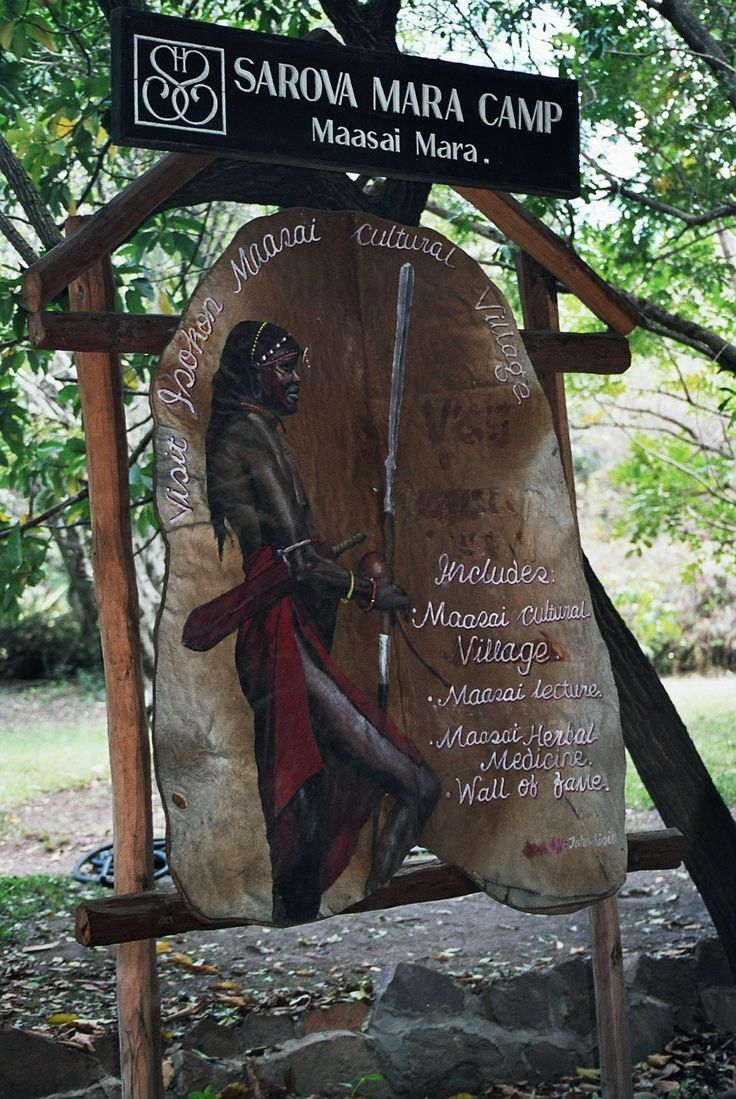 SAROVA MARA CAMP
Maasai Mara.
Visit Isokon Maasai Cultural Village
Visit
Includes:
• Maasai Cultural
Village.
• Maasai lecture.
• Maasai Herbal
Medicine.
• Wall of fame.